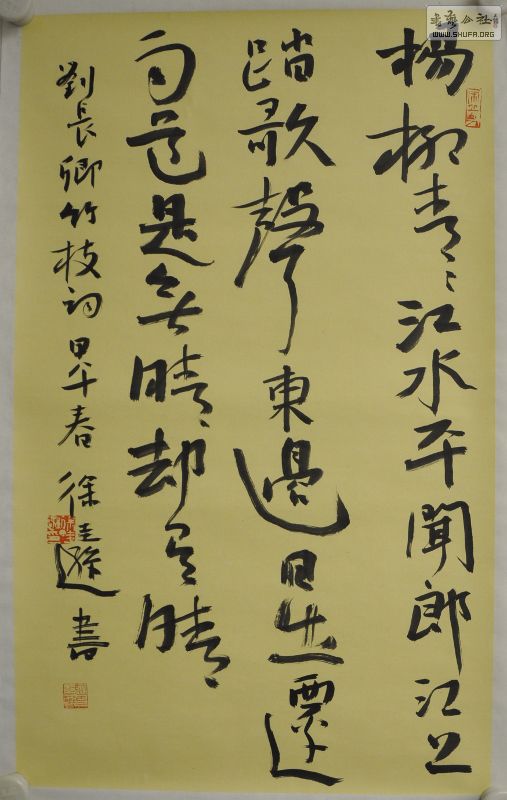 楊柳青〻江水平聞郎江上
踏歌聲東邊日出西邊
雨道是無晴却有晴
劉長卿竹枝詞 甲午春 徐書
公社
WWW.SHUFA.ORG